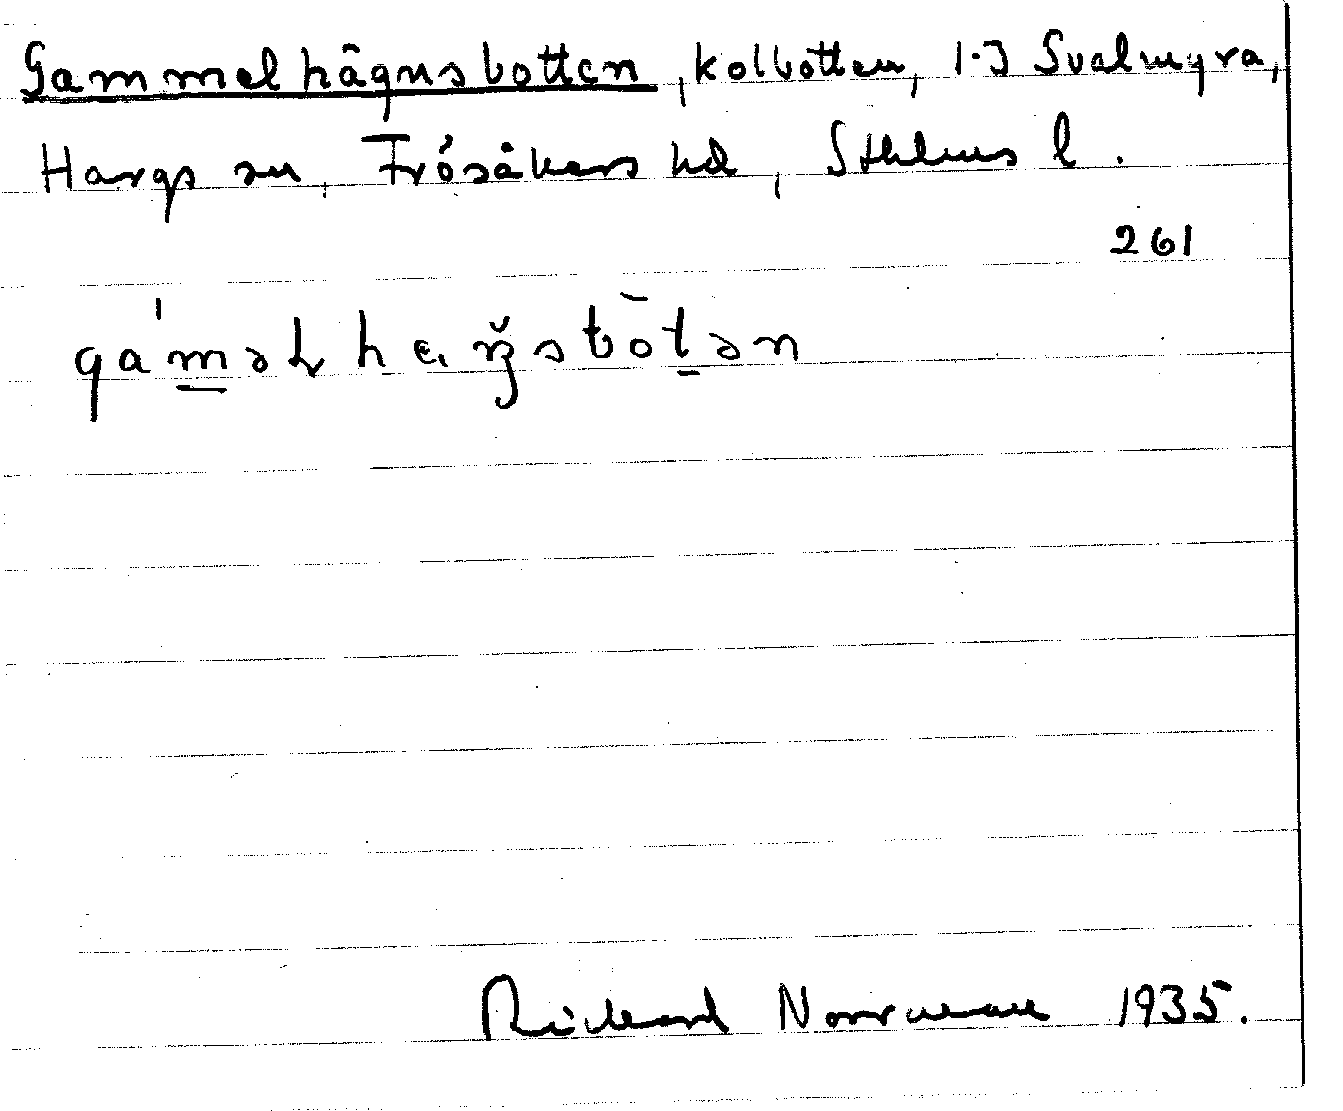 Gammelhägnsbotten, kolbotten, 1·3 Svalmyra,
Hargs sn, Frösåkers hd, Sthlms l.
261
Rickard Norrman 1935.